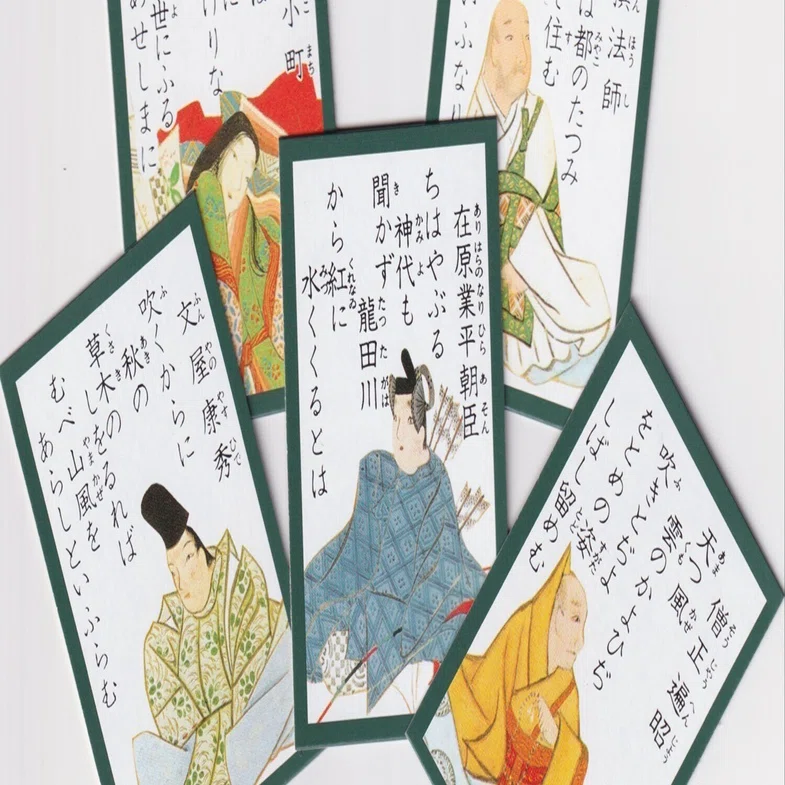 小町
けりな
世にふる
めせしまに
法師
は都のたつみ
住む
ふなり
在原業平朝臣
ちはやぶる
神代も
聞かず
龍田川
から紅に
水くくるとは
文屋康秀
吹くからに
秋の
草木の
しをるれば
むべ山風を
あらしといふらむ
僧正遍昭
天つ風
雲のかよひぢ
吹きとぢよ
をとめの姿
しばし留めむ